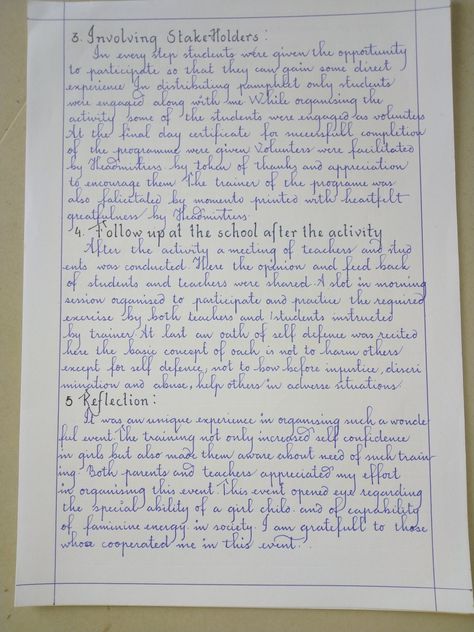 3. Involving StakeHolders:
In every step students were given the opportunity
to participate so that they can gain some direct
experience In distributing pamphlet only students
were engaged along with me While organising the
activity some of the students were engaged as volunteers
At the final day certificate for successfull completion
of the programme were given Volunters were facilitated
by Headmistress by token of thanks and appreciation
to encourage them The trainer of the programe was
also falicitated by momento printed with heartfelt
greatfulness by Headmistress
4. Follow up at the school after the activity
After the activity a meeting of teachers and stud
ents was conducted. Here the opinion and feed back
of students and teachers were shared. A slot in morning
session organised to participate and practice the required
exercise by both teachers and students instructed
by trainer At last an oath of self defence was recited
here the basic concept of oach is not to harm others
except for self defence, not to bow before injustice, discri
mination and abuse, help others in adverse situations
5 Reflection:
It was an unique experience in organising such a wonde
ful event. The training not only increased self confidence
in girls but also made them aware about need of such train
ing Both parents and teachers appreciated my effort
in organising this event. This event opened eye regarding
the special ability of a girl child. and of capability
of faminine energy in society. I am gratefull to those
whose cooperated me in this event..